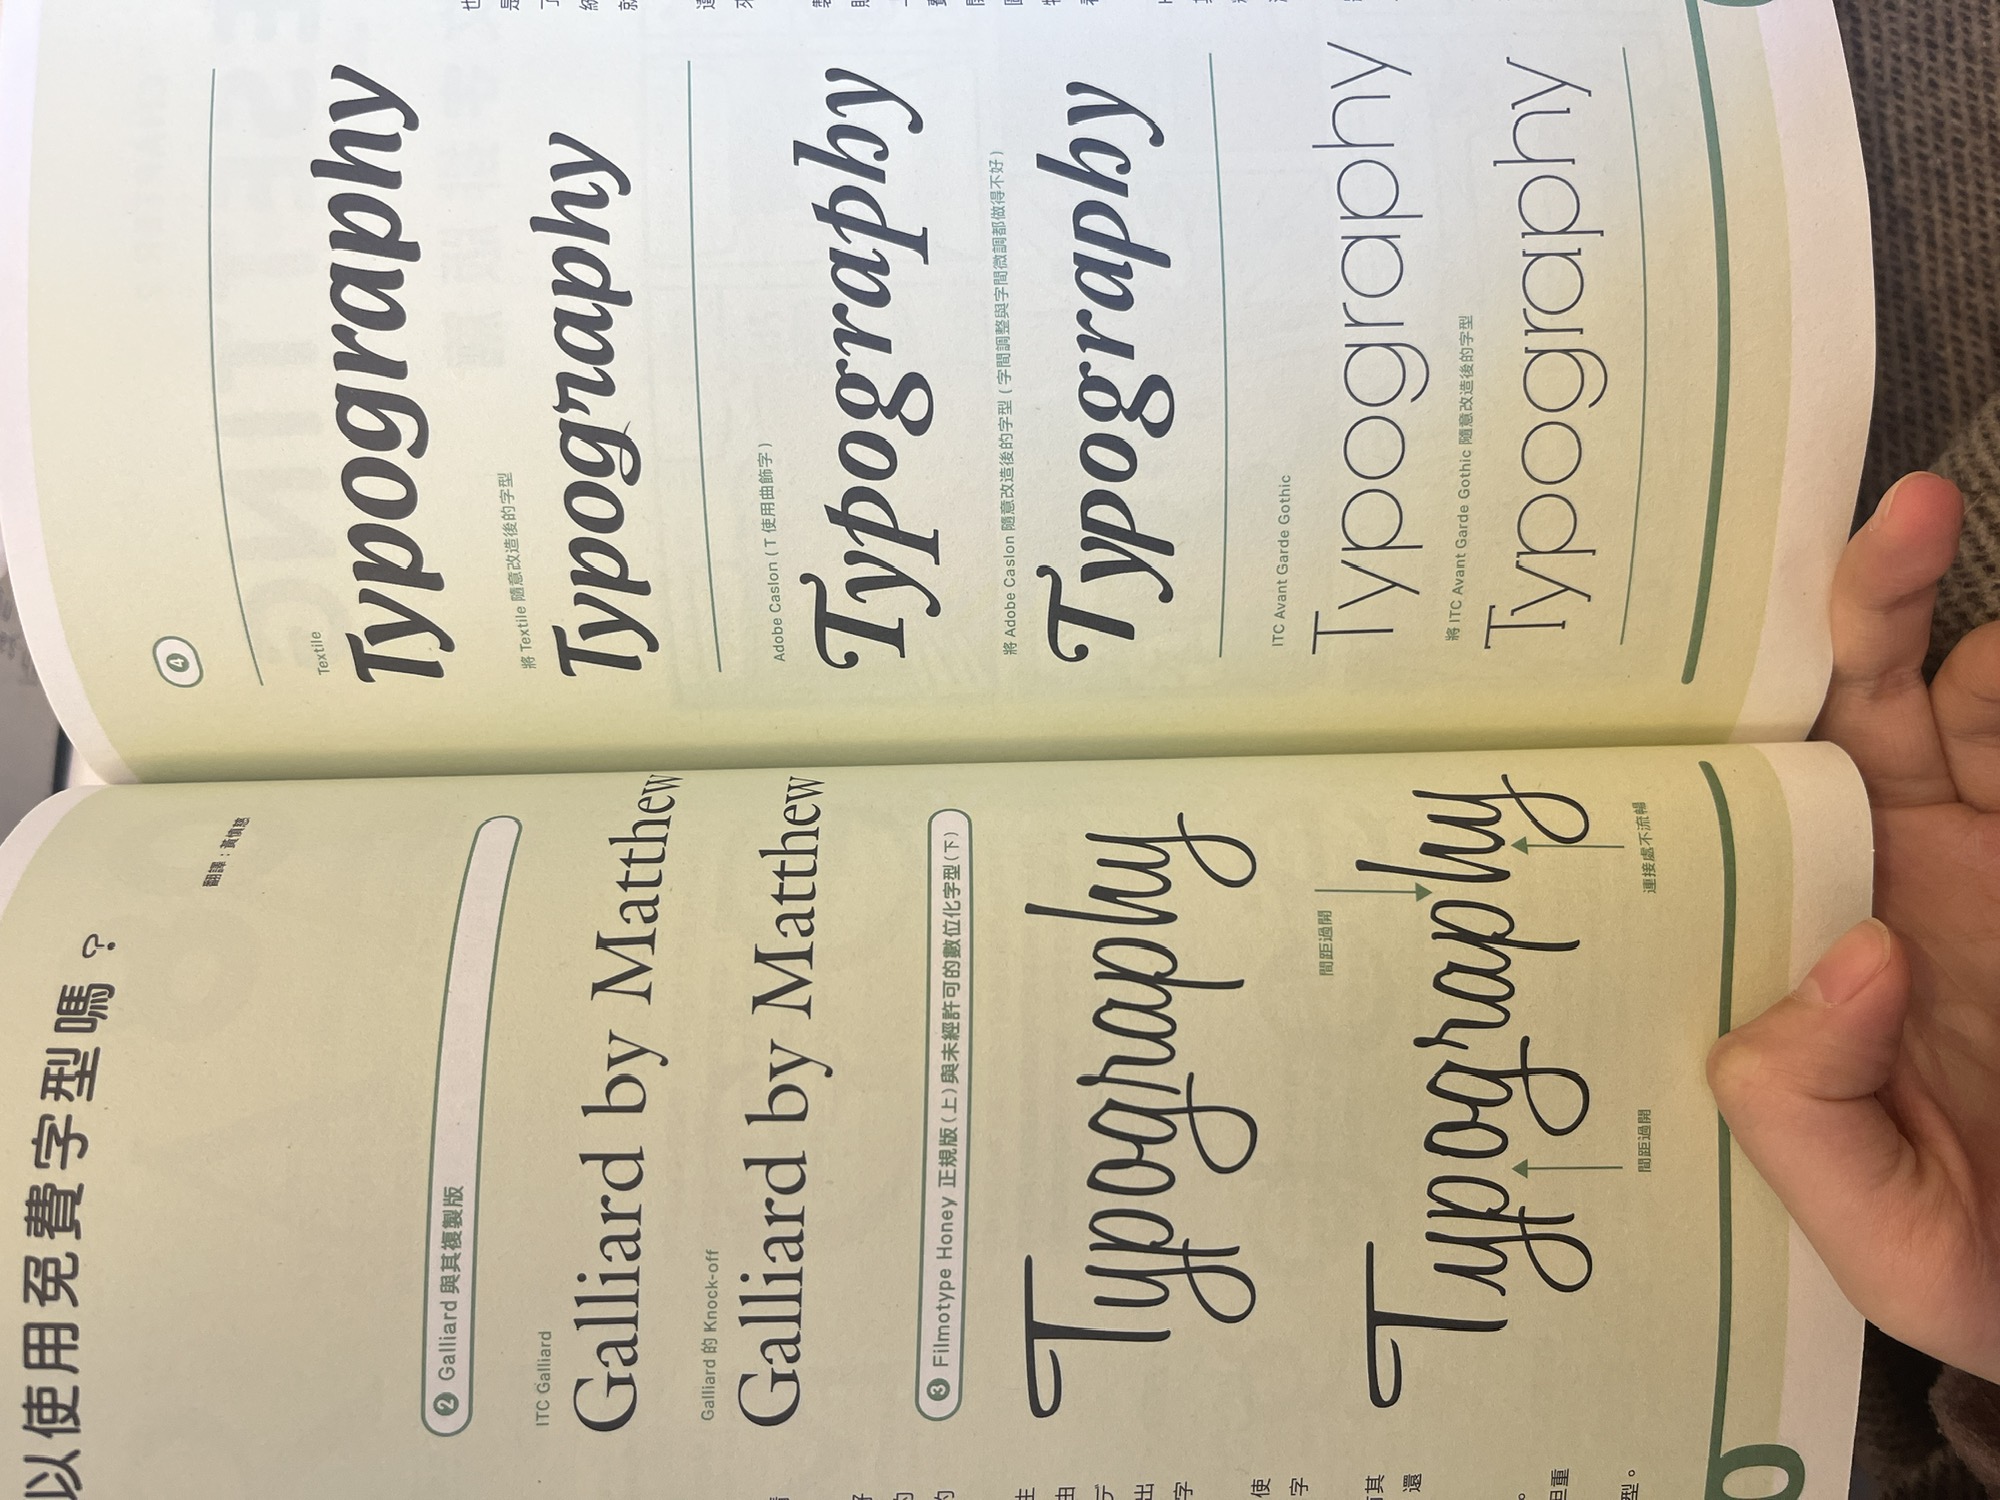 以使用免費字型嗎？
翻譯：黃慎慈
❷ Galliard 與其複製版
ITC Galliard
Galliard by Matthew
Galliard 的 Knock-off
Galliard by Matthew
❸ Filmotype Honey 正規版（上）與未經許可的數位化字型（下）
Typography
間距過開
Typography
間距過開
連接處不流暢
❹
Textile
Typography
將 Textile 隨意改造後的字型
Typography
Adobe Caslon（T 使用曲飾字）
Typography
將 Adobe Caslon 隨意改造後的字型（字間調整與字間微調都做得不好）
Typography
ITC Avant Garde Gothic
Typography
將 ITC Avant Garde Gothic 隨意改造後的字型
Typography
的
的
生
由
デ
出
字
使
字
其
還
但重
型。